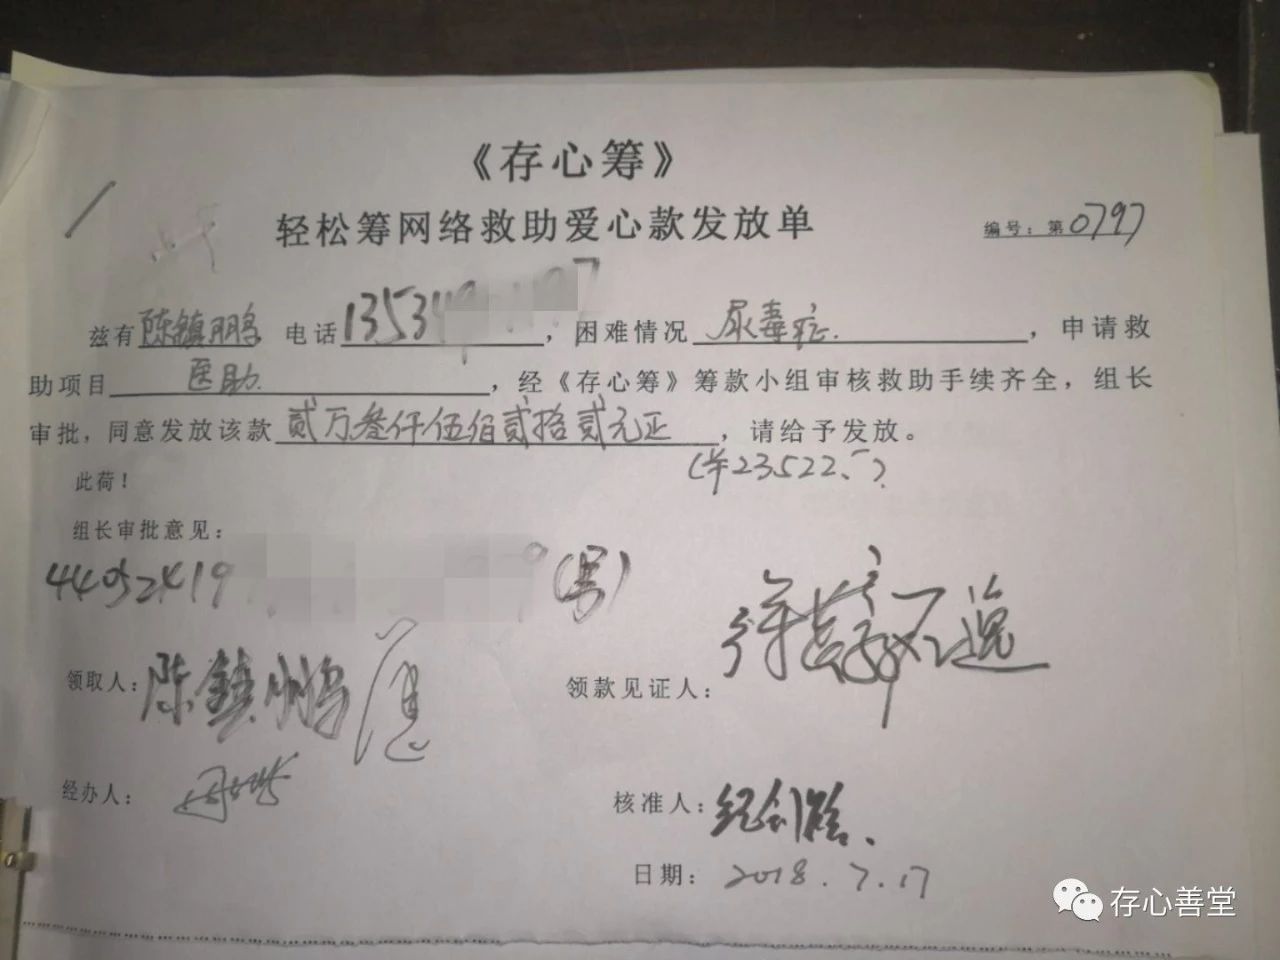 《存心筹》
轻松筹网络救助爱心款发放单
编号：第0797
兹有陈鎮鹏 电话13534，困难情况 尿毒症.，申请救
助项目 医助.，经《存心筹》筹款小组审核救助手续齐全，组长
审批，同意发放该款贰万叁仟伍佰贰拾贰元正，请给予发放。
(半23522.)
此荷！
组长审批意见：
44052419 (男)
领取人：陈鎮鹏
领款见证人：
经办人：
核准人：
日期：2018.7.17
存心善堂